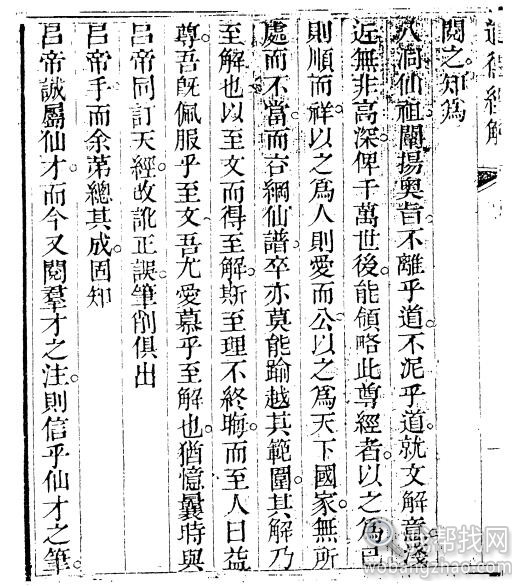 道德經解
閱之知爲
八洞仙祖闡揚奧旨不離乎道不泥乎道就文解意淺
近無非高深俾千萬世後能領略此尊經者以之爲己
則順而祥以之爲人則愛而公以之爲天下國家無所
處而不當而玄綱仙譜卒亦莫能踰越其範圍其解乃
至解也以至文而得至解斯至理不終晦而至人日益
尊吾旣佩服乎至文吾尤愛慕乎至解也猶憶曩時與
呂帝同訂天經改訛正誤筆削俱出
呂帝手而余第總其成固知
呂帝誠屬仙才而今又閱羣才之注則信乎仙才之筆
帮找网
wobangzhao.com